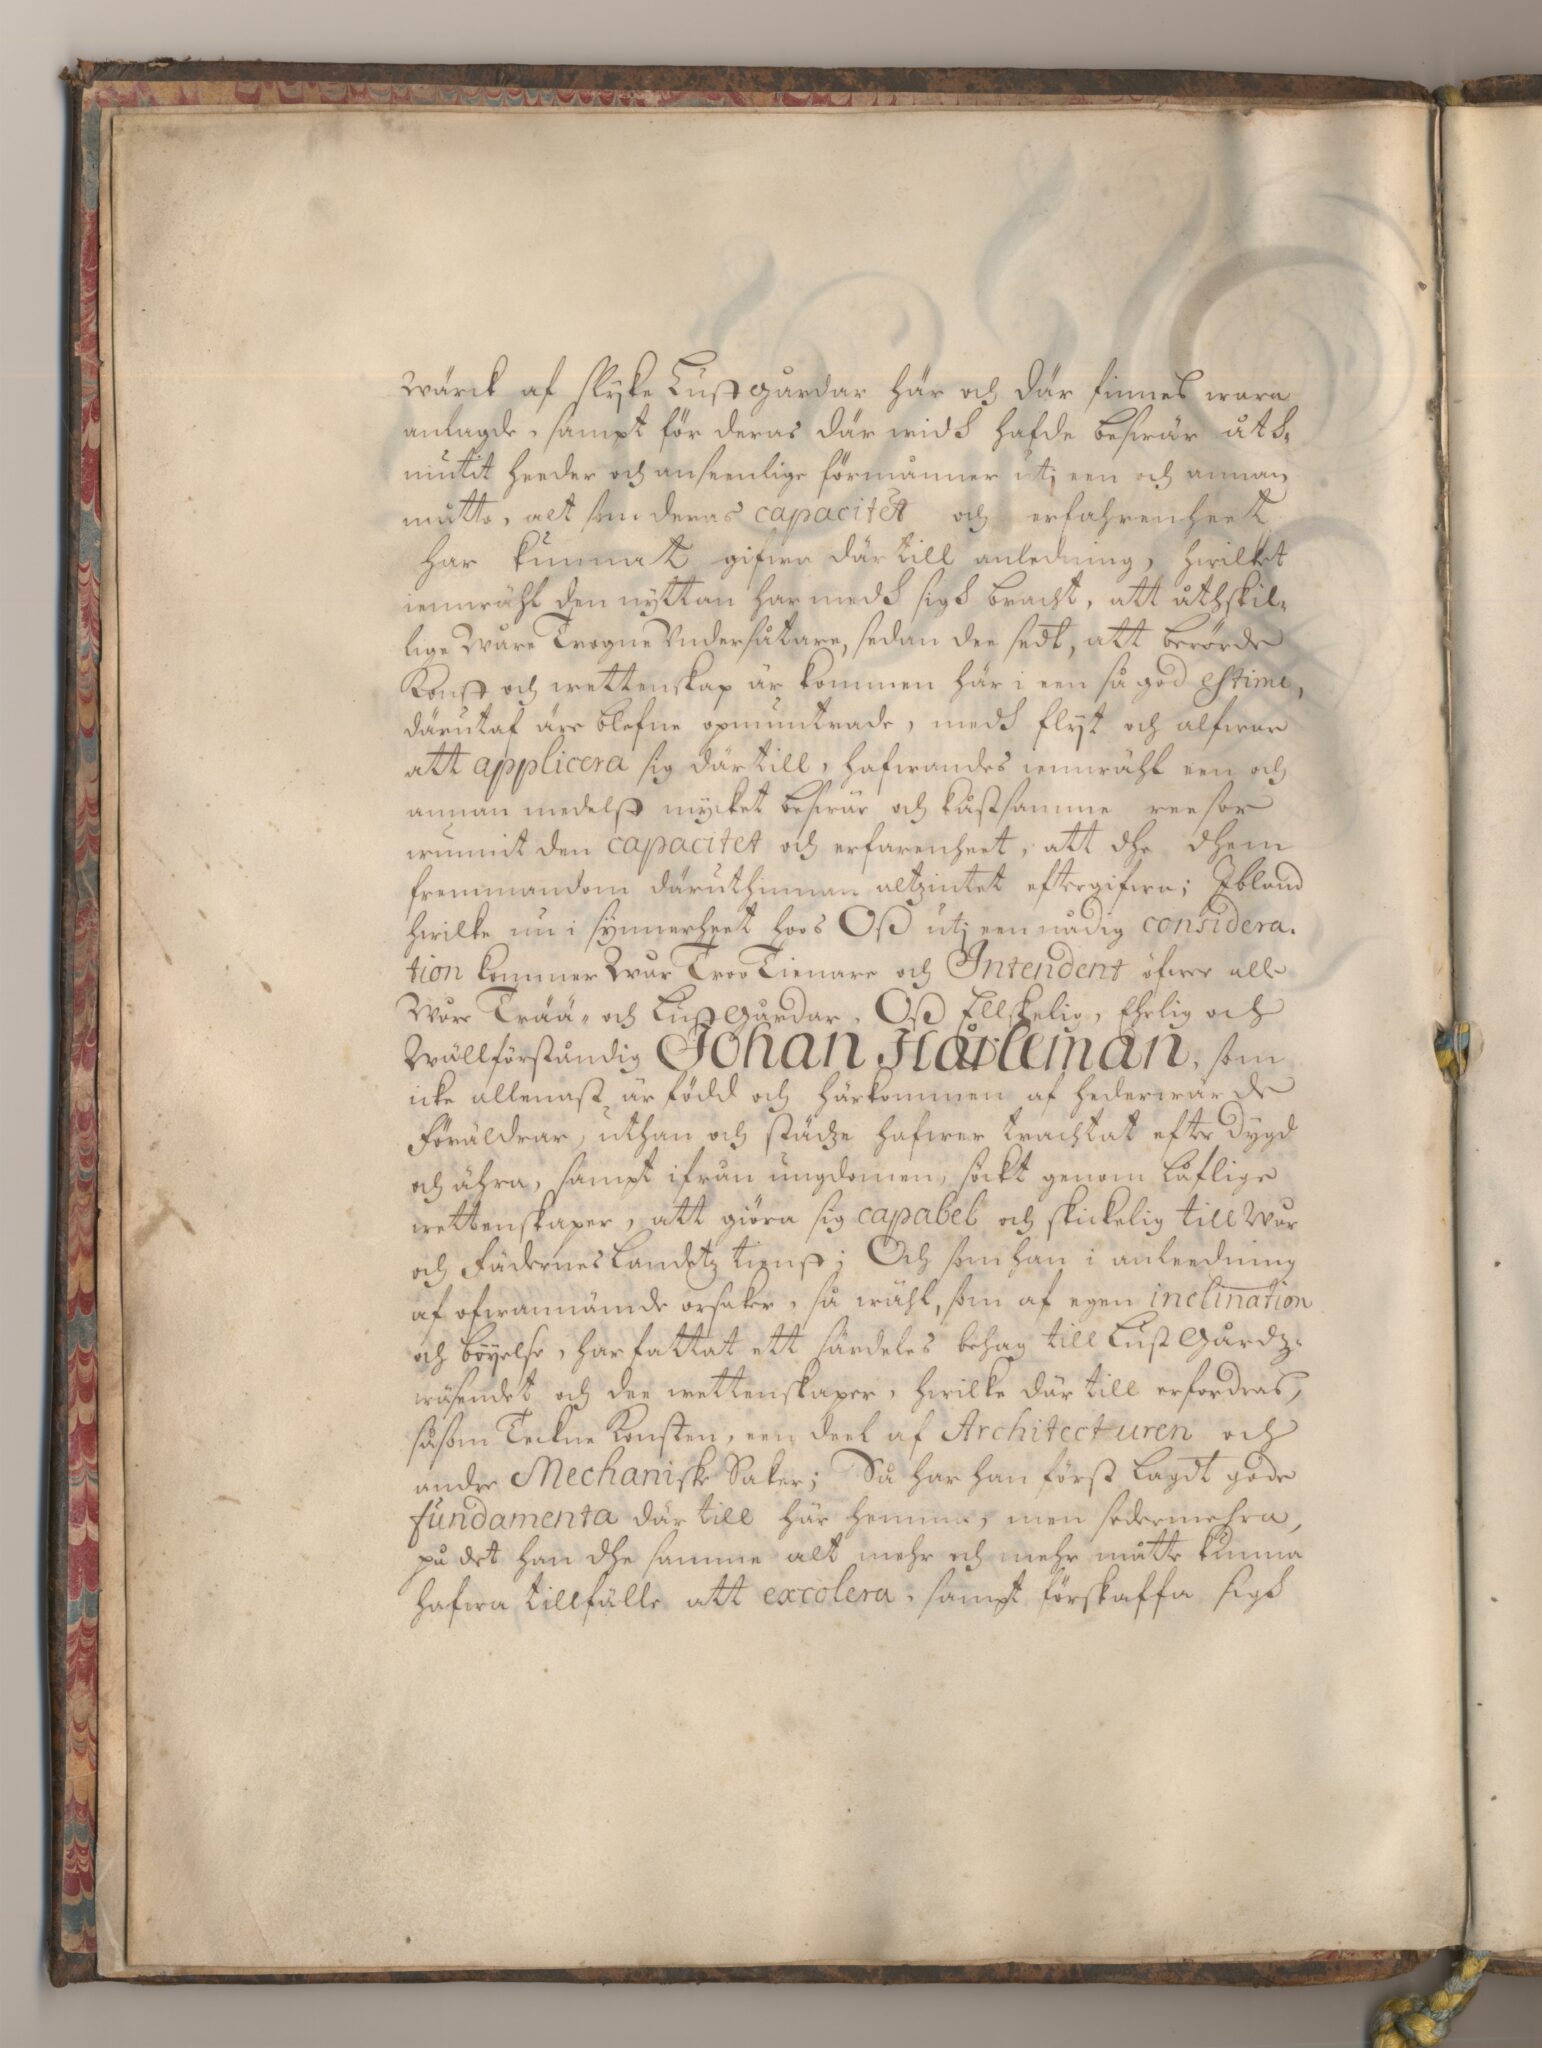 Wärck af slyke Lustgårdar här och där finnes wara
anlagde, sampt för deras där widh hafde beswär åth-
niutit heeder och anseenlige förmåner utj een och annan
måtto, alt som deras capacitét och erfahrenheet
har kunnat gifwa därtill anledning, hwilket
iemwähl den nyttan har medh sigh bracht, att åthskil-
lige Wåre Trogne Undersåtare, sedan dee sedt, att berörde
Konst och wettenskap är kommen här i een så god estime,
därutaf äre blefne opmuntrade, medh flyt och alfwar
att applicera sig därtill, hafwandes iemwähl een och
annan medelst mycket beswär och kåstsamme reesor
wunnit den capacitet och erfarenheet, att dhe dhem
fremmandom däruthinnan altzintet eftergifwa; Ibland
hwilke nu i synnerheet hoos Oß utj een nådig considera-
tion kommer Wår Troo Tienare och Intendent öfwer alle
Wåre Trää- och Lustgårdar, Oß Ellskelig, Ehrlig och
Wällförståndig Johan Hårleman, som
icke allenast är född och härkommen af hederwärde
Föräldrar, uthan och städze hafwer trachtat efter dygd
och ähra, sampt ifrån ungdomen, sökt genom låflige
wettenskaper, att giöra sig capabel och skickelig till Wår
och Fädernes Landetz tienst; Och som han i anleedning
af ofwannämde orsaker, så wähl, som af egen inclination
och böyelse, har fattat ett särdeles behag till Lust Gårdz-
wäsendet och dee wettenskaper, hwilke därtill erfordras,
såsom Teckne Konsten, een deel af Architecturen och
andre Mechaniske Saker; Så har han först lagdt gode
fundamenta därtill här hemma, men sedermehra,
på det han dhe samme alt mehr och mehr måtte kunna
hafwa tillfälle att excolera, sampt förskaffa sigh